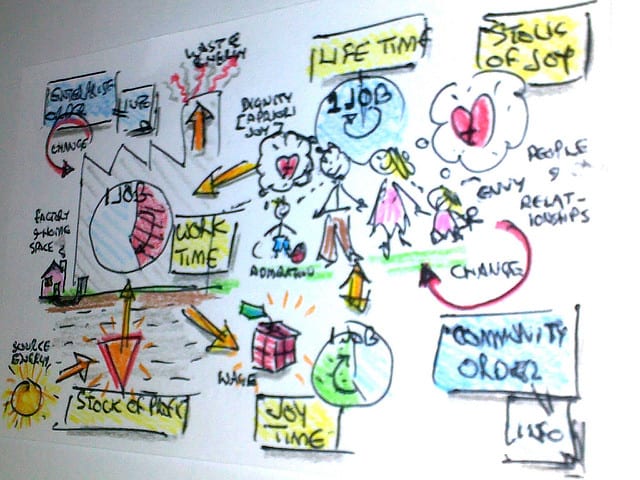 WASTE
ENERGY
LIFE TIME
STOCK
OF JOY
ENTERPRISE
ORDER
INFO
CHANGE
DIGNITY
[APRIORI
JOY]
1 JOB
PEOPLE
&
RELAT-
IONSHIPS
ENVY
1 JOB
FACTORY
& HOME
SPACE
WORK
TIME
ADMIRATION
CHANGE
SOURCE
ENERGY
STOCK OF PROFIT
WAGE
1 JOB
JOY
TIME
COMMUNITY
ORDER
INFO